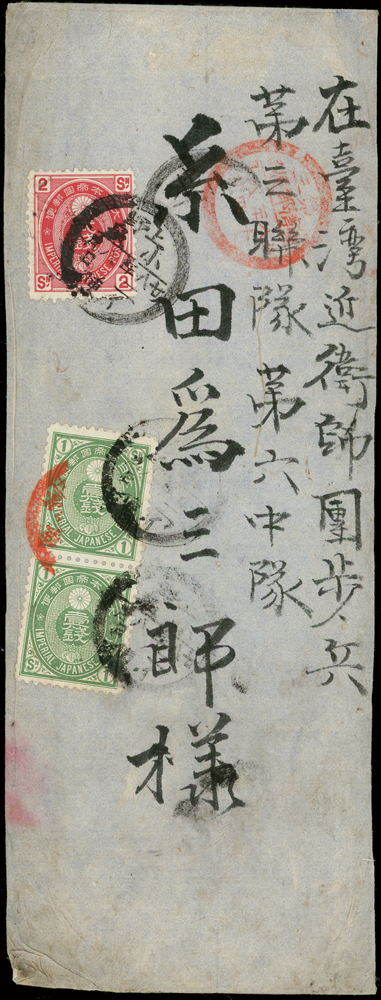 在臺湾近衛師團歩兵
第三聯隊第六中隊
糸田爲三郎様
2 Sⁿ
大日本帝國郵便
IMPERIAL JAPANESE POST
Sⁿ 2
1
大日本帝國郵便
壹錢
IMPERIAL JAPANESE
1
大日本帝國郵便
壹錢
IMPERIAL JAPANESE
Sⁿ 1